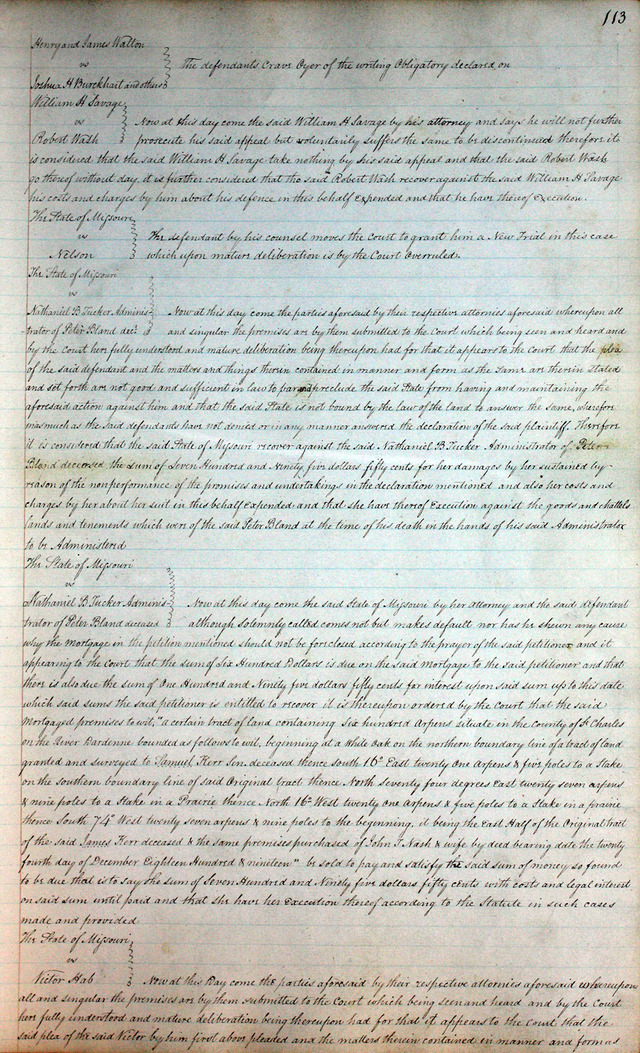 113
Henry and James Walton
vs
The defendants Crave Oyer of the writing Obligatory declared on
Joshua H Burckhart and others
William H Savage
vs
Now at this day come the said William H Savage by his attorney and says he will not further
Robert Wash
prosecute his said appeal but voluntarily suffers the same to be discontinued therefore it
is considered that the said William H Savage take nothing by his said appeal and that the said Robert Wash
go thereof without day. it is further considered that the said Robert Wash recover against the said William H Savage
his costs and charges by him about his defence in this behalf expended and that he have thereof Execution.
The State of Missouri
vs
The defendant by his counsel moves the Court to grant him a New Trial in this case
Nelson
which upon mature deliberation is by the Court Overruled.
The State of Missouri
vs
Nathaniel B Tucker Adminis
Now at this day come the parties aforesaid by their respective attornies aforesaid whereupon all
trator of Peter Bland decd
and singular the premises are by them submitted to the Court which being seen and heard and
by the Court here fully understood and mature deliberation being thereupon had for that it appears to the Court that the plea
of the said defendant and the matters and things therein contained in manner and form as the Same are therein Stated
and set forth are not good and sufficient in law to bar and preclude the said State from having and maintaining the
aforesaid action against him and that the said State is not bound by the law of the land to answer the same, wherefore
inasmuch as the Said defendants have not denied or in any manner answered the declaration of the said plaintiff. Therefore
it is considered that the said State of Missouri recover against the said Nathaniel B Tucker Administrator of Peter
Bland deceased the sum of Seven Hundred and Ninety five dollars fifty cents for her damages by her sustained by
reason of the nonperformance of the promises and undertakings in the declaration mentioned and also her costs and
charges by her about her suit in this behalf Expended and that she have thereof Execution against the goods and chattels
lands and tenements which were of the said Peter Bland at the time of his death in the hands of his said Administrator
to be Administered
The State of Missouri
vs
Nathaniel B Tucker Adminis
Now at this day come the said State of Missouri by her Attorney and the said defendant
trator of Peter Bland deceased
although solemnly called comes not but makes default nor has he shewn any cause
why the mortgage in the petition mentioned should not be foreclosed according to the prayer of the said petitioner and it
appearing to the court that the sum of Six Hundred Dollars is due on the said mortgage to the said petitioner and that
there is also due the sum of One Hundred and Ninety five dollars fifty cents for interest upon said sum up to this date
which said sums the said petitioner is entitled to recover it is thereupon ordered by the Court that the said
Mortgaged premises to wit, "a certain tract of land containing Six hundred Arpens situate in the County of St Charles
on the River Dardenne bounded as follows to wit, beginning at a White Oak on the northern boundary line of a tract of land
granted and surveyed to Samuel Kerr Sen. deceased thence south 16° East twenty one Arpens & five poles to a Stake
on the southern boundary line of said Original tract thence North seventy four degrees East twenty seven arpens
& nine poles to a Stake in a Prairie thence North 16° West twenty One Arpens & five poles to a Stake in a prairie
thence South 74° West twenty seven arpens & nine poles to the beginning, it being the East Half of the Original tract
of the said James Kerr deceased & the same premises purchased of John T. Nash & wife by deed bearing date the twenty
fourth day of December Eighteen Hundred & nineteen" be sold to pay and satisfy the said sum of money so found
to be due that is to say the sum of Seven Hundred and Ninety five dollars fifty cents with costs and legal interest
on said sum until paid and that she have her Execution thereof according to the Statute in such cases
made and provided
The State of Missouri
vs
Victor Hab
Now at this Day come the parties aforesaid by their respective attornies aforesaid whereupon
all and singular the premises are by them submitted to the Court which being seen and heard and by the Court
here fully understood and mature deliberation being thereupon had for that it appears to the Court that the
said plea of the said Victor by him first above pleaded and the matters therein contained in manner and form as